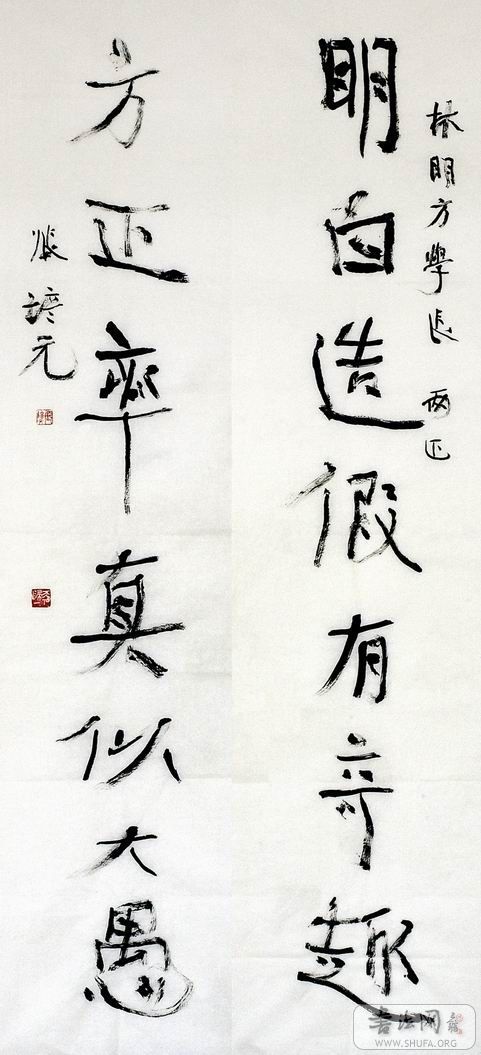 林明方學長 两正
明白造假有竒趣
方正率真似大愚
張諺元
書法网
WWW.SHUFA.ORG